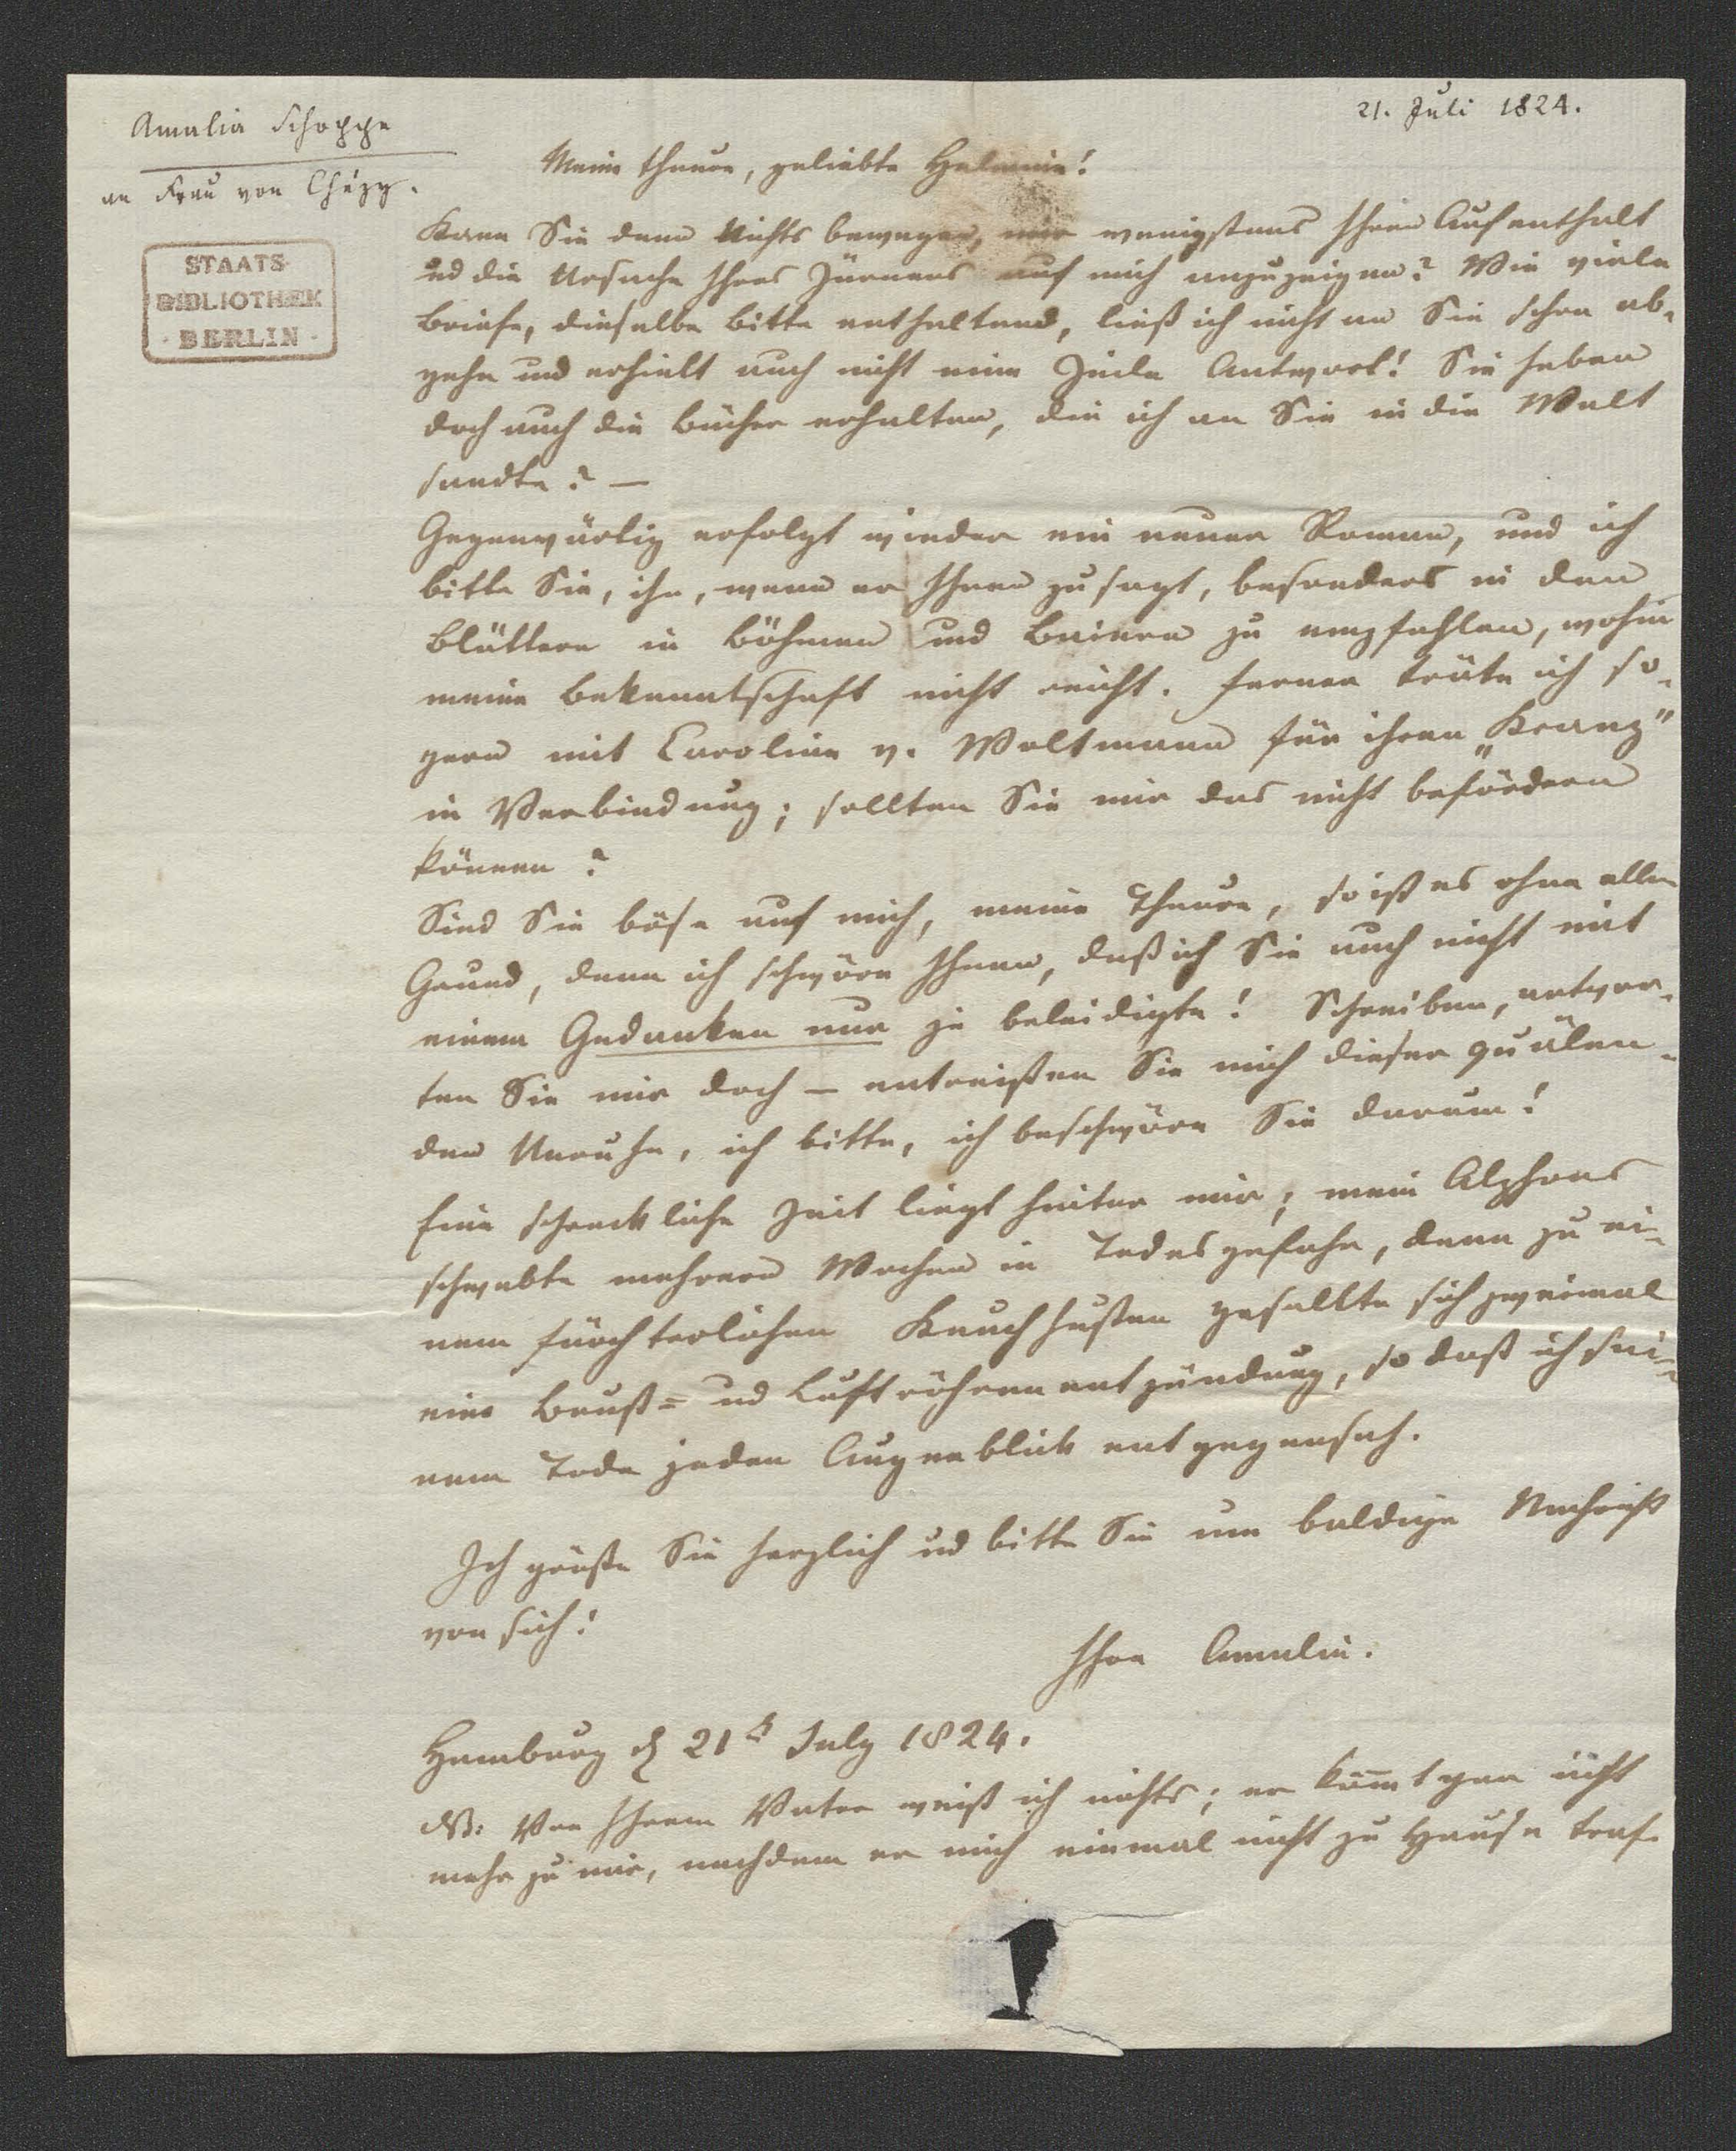 21. Juli 1824.
Amalia Schoppe
an Frau von Chézy.
STAATS-
BIBLIOTHEK
· BERLIN ·
Meine theure, geliebte Helmine!
Kann Sie denn Nichts bewegen, mir wenigstens Ihren Aufenthalt
und die Ursache Ihres Zürnens auf mich anzuzeigen? Wie viele
Briefe, dieselbe Bitte enthaltend, ließ ich nicht an Sie schon ab-
gehn und erhielt auch nicht eine Zeile Antwort! Sie haben
doch auch die Bücher erhalten, die ich an Sie in die Welt
sandte? —
Gegenwärtig erfolgt wieder ein neuer Roman, und ich
bitte Sie, ihn, wenn er Ihnen zusagt, besonders in den
Blättern in Böhmen und Baiern zu empfehlen, wohin
meine Bekanntschaft nicht reicht. Ferner träte ich so-
gern mit Caroline v. Woltmann für ihren „Kranz"
in Verbindung; sollten Sie mir das nicht befördern
können?
Sind Sie böse auf mich, meine Theure, so ist es ohne allen
Grund, denn ich schwöre Ihnen, daß ich Sie auch nicht mit
einem Gedanken nur je beleidigte! Schreiben, antwor-
ten Sie mir doch — entreißen Sie mich dieser quälen-
den Unruhe, ich bitte, ich beschwöre Sie darum!
Eine schreckliche Zeit liegt hinter mir; mein Alphons
schwebte mehrere Wochen in Todesgefahr, denn zu ei-
nem fürchterlichen Keuchhusten gesellte sich zweimal
eine Brust- und Luftröhrenentzündung, so daß ich sei-
nem Tode jeden Augenblick entgegensah.
Ich grüße Sie herzlich und bitte Sie um baldige Nachricht
von sich!
Ihre Amalie.
Hamburg d 21t July 1824.
NB: Von Ihrem Vater weiß ich nichts; er kom̄t gar nicht
mehr zu mir, nachdem er mich einmal nicht zu Hause traf.